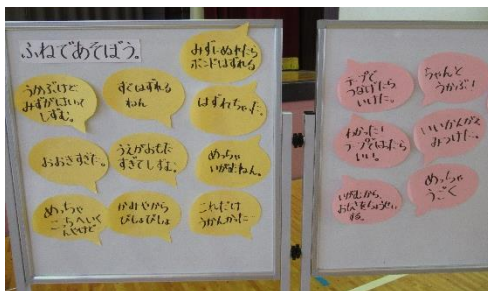 ふねであそぼう。
みずにぬれたら
ボンドはずれる
うかぶけど
みずがはいって
しずむ。
すぐはずれる
ねん
はずれちゃった。
おおきすぎた。
うえがおもた
すぎてしずむ。
めっちゃ
いがむねん。
めっちゃ
こっちへいく
んやけど
かみやから
びしょびしょ
これだけ
うかんかった…
テープで
つなげたら
いけた。
ちゃんと
うかぶ！
わかった！
テープではったら
いい。
いいかんがえ
みつけた。
いがむから
する。
めっちゃ
うごく